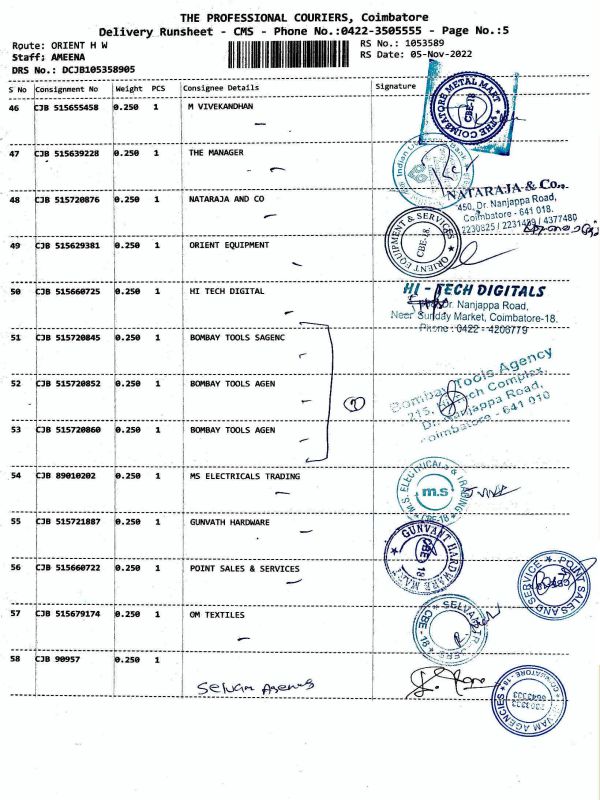 THE PROFESSIONAL COURIERS, Coimbatore
Delivery Runsheet - CMS - Phone No.:0422-3505555 - Page No.:5
Route: ORIENT H W
RS No.: 1053589
Staff: AMEENA
RS Date: 05-Nov-2022
DRS No.: DCJB105358905
S No Consignment No Weight PCS Consignee Details Signature
46 CJB 515655458 0.250 1 M VIVEKANDHAN
THE COIMBATORE METAL MART CBE-18
47 CJB 515639228 0.250 1 THE MANAGER
48 CJB 515720876 0.250 1 NATARAJA AND CO
NATARAJA & Co.,
450, Dr. Nanjappa Road,
Coimbatore - 641 018.
49 CJB 515629381 0.250 1 ORIENT EQUIPMENT
ORIENT EQUIPMENT & SERVICES CBE-18.
50 CJB 515660725 0.250 1 HI TECH DIGITAL
HI - TECH DIGITALS
Dr. Nanjappa Road,
Near Sunday Market, Coimbatore-18.
Phone : 0422 - 4206779
51 CJB 515720845 0.250 1 BOMBAY TOOLS SAGENC
52 CJB 515720852 0.250 1 BOMBAY TOOLS AGEN
Bombay Tools Agency
Complex,
Dr. Nanjappa Road,
Coimbatore - 641 010
53 CJB 515720860 0.250 1 BOMBAY TOOLS AGEN
54 CJB 89010202 0.250 1 MS ELECTRICALS TRADING
M.S. ELECTRICALS & TRADING m.s CBE-18
55 CJB 515721887 0.250 1 GUNVATH HARDWARE
GUNVANT HARDWARE MART CBE 18
56 CJB 515660722 0.250 1 POINT SALES & SERVICES
POINT SALES AND SERVICE
57 CJB 515679174 0.250 1 OM TEXTILES
58 CJB 90957 0.250 1
Selvam Agency